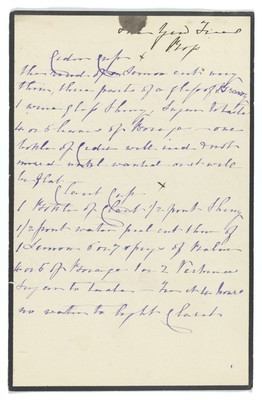 Cider Cup x
the rind of a Lemon cut very
thin, three parts of a glass of Brandy
1 wine glass Sherry Sugar to taste
4 or 6 leaves of Borage - one
bottle of Cider well iced & not
mixed until wanted or it will
be flat.
Claret Cup x
1 Bottle of Claret 1/2 pint Sherry
1/2 pint water peel cut thin of
1 Lemon 6 or 7 sprigs of Balm
4 or 6 of Borage 1 or 2 Verbena
Sugar to taste - Ice it 4 hours
no water to light Claret